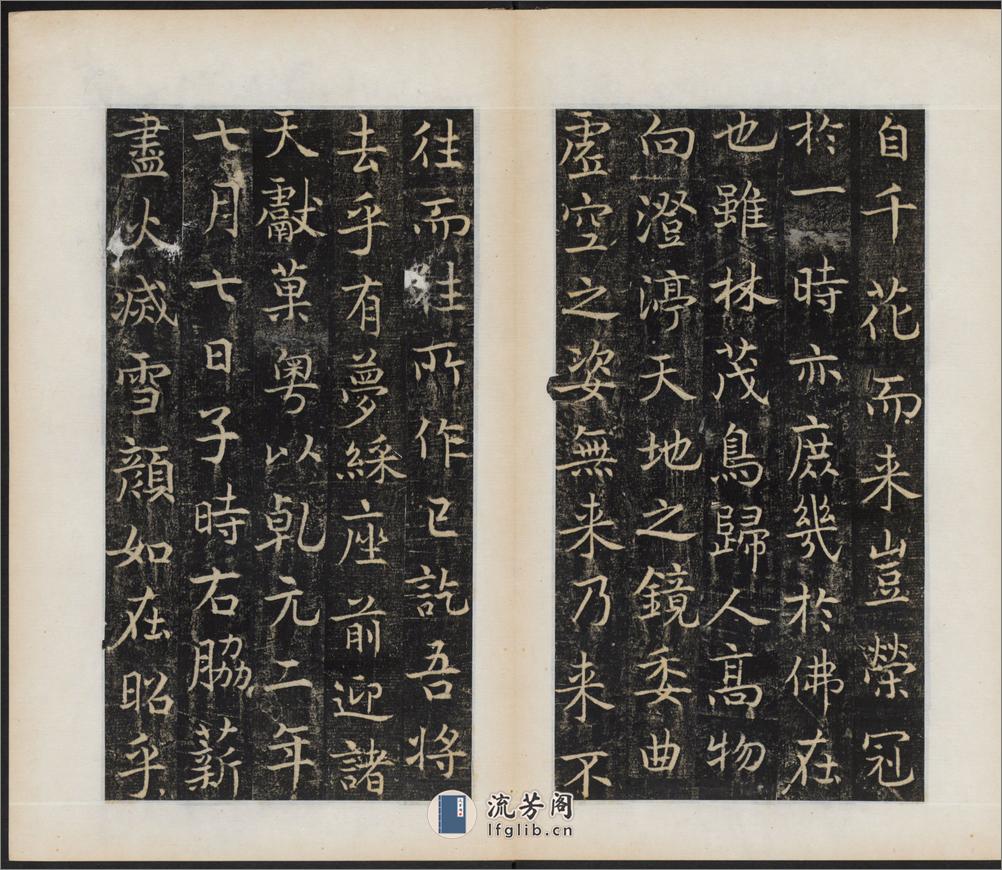 自千花而来豈榮冠
於一時亦庶幾於佛在
也雖林茂鳥歸人高物
向澄渟天地之鏡委曲
虛空之姿無来乃来不
往而往所作已訖吾将
去乎有夢綵座前迎諸
天獻菓粤以乹元二年
七月七日子時右脇薪
盡火滅雪顔如在昭乎
流芳阁
lfglib.cn